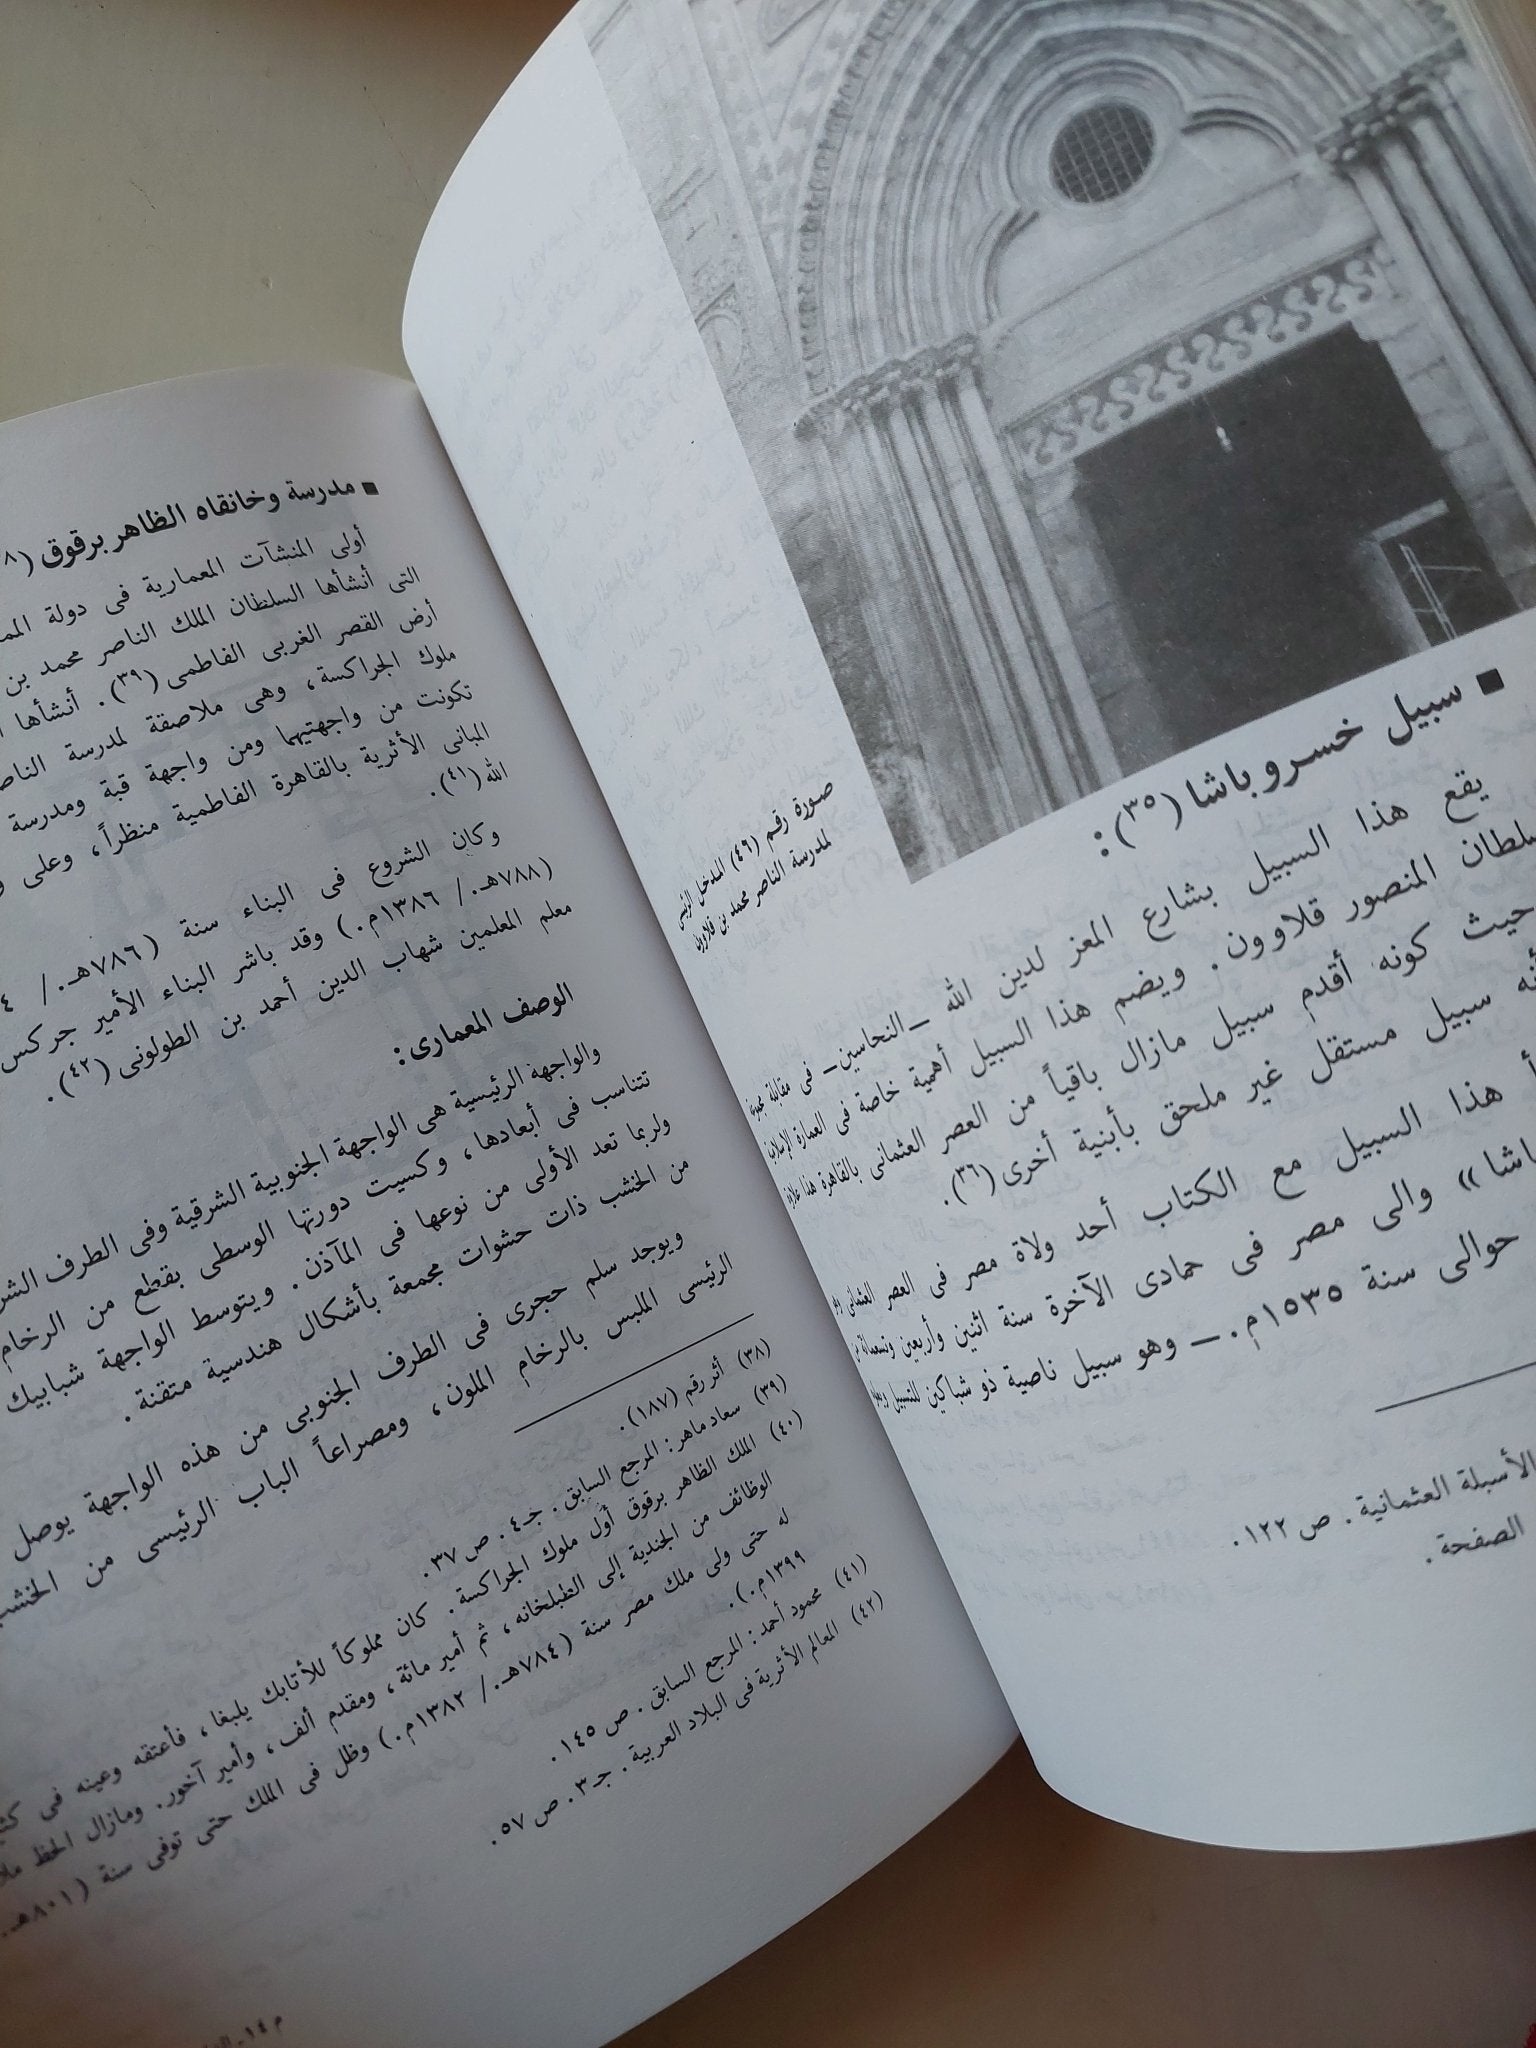 صورة رقم (٤٦) المدخل الرئيسى
لمدرسة الناصر محمد بن قلاوون
■ سبيل خسرو باشا (٣٥):
يقع هذا السبيل بشارع المعز لدين الله – النحاسين – فى مقابلة
المنصور قلاوون. ويضم هذا السبيل أهمية خاصة فى العمارة الإسلامية
حيث كونه أقدم سبيل مازال باقياً من العصر العثمانى بالقاهرة هذا علاوة
سبيل مستقل غير ملحق بأبنية أخرى (٣٦).
هذا السبيل مع الكتاب أحد ولاة مصر فى العصر العثمانى وهو
باشا» والى مصر فى جمادى الآخرة سنة اثنين وأربعين وتسعمائة من
حوالى سنة ١٥٣٥م. – وهو سبيل ناصية ذو شباكين للتسبيل
الأسبلة العثمانية. ص ١٢٢.
الصفحة.
■ مدرسة وخانقاه الظاهر برقوق
أولى المنشآت المعمارية فى دولة
التى أنشأها السلطان الملك الناصر محمد بن
أرض القصر الغربى الفاطمى (٣٩). أنشأها
ملوك الجراكسة، وهى ملاصقة لمدرسة
تكونت من واجهتيهما ومن واجهة قبة ومدرسة
المبانى الأثرية بالقاهرة الفاطمية منظراً، وعلى
الله (٤١).
وكان الشروع فى البناء سنة (٧٨٦هـ. /
(٧٨٨هـ. / ١٣٨٦م.) وقد باشر البناء الأمير جركس
معلم المعلمين شهاب الدين أحمد بن الطولونى (٤٢).
الوصف المعمارى:
والواجهة الرئيسية هى الواجهة الجنوبية الشرقية وفى الطرف
تتناسب فى أبعادها، وكسيت دورتها الوسطى بقطع من الرخام
ولربما تعد الأولى من نوعها فى المآذن. ويتوسط الواجهة شبابيك
من الخشب ذات حشوات مجمعة بأشكال هندسية متقنة.
ويوجد سلم حجرى فى الطرف الجنوبى من هذه الواجهة يوصل
الرئيسى الملبس بالرخام الملون، ومصراعاً الباب الرئيسى من
(٣٨) أثر رقم (١٨٧).
(٣٩) سعاد ماهر: المرجع السابق. جـ٤. ص ٣٧.
(٤٠) الملك الظاهر برقوق أول ملوك الجراكسة. كان مملوكاً للأتابك يلبغا، فأعتقه وعينه فى
الوظائف من الجندية إلى الطبلخانه، ثم أمير مائة، ومقدم ألف، وأمير آخور. ومازال الحظ
له حتى ولى ملك مصر سنة (٧٨٤هـ. / ١٣٨٢م.) وظل فى الملك حتى توفى سنة (٨٠١هـ.
١٣٩٩م.).
(٤١) محمود أحمد: المرجع السابق. ص ١٤٥.
(٤٢) المعالم الأثرية فى البلاد العربية. جـ٣. ص ٥٧.